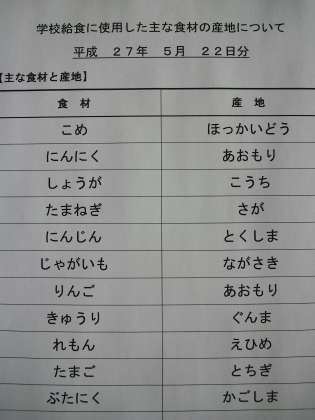 学校給食に使用した主な食材の産地について
平成 27年 5月 22日分
【主な食材と産地】
食 材 産 地
こめ ほっかいどう
にんにく あおもり
しょうが こうち
たまねぎ さが
にんじん とくしま
じゃがいも ながさき
りんご あおもり
きゅうり ぐんま
れもん えひめ
たまご とちぎ
ぶたにく かごしま